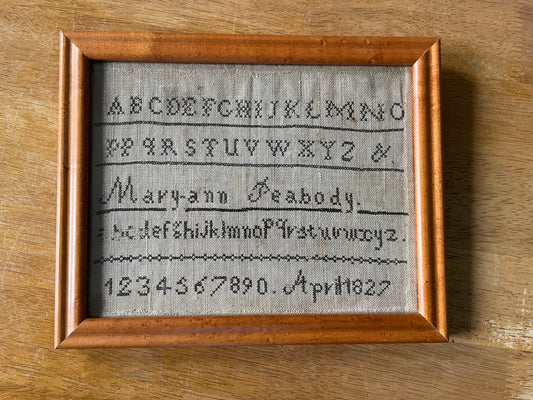 ABCDEFGHIJKLMNO
PPqRSTUVWXYZ &.
Mary-ann Peabody.
abcdefghijklmnopqrstuvwxyz.
1234567890. April 1827